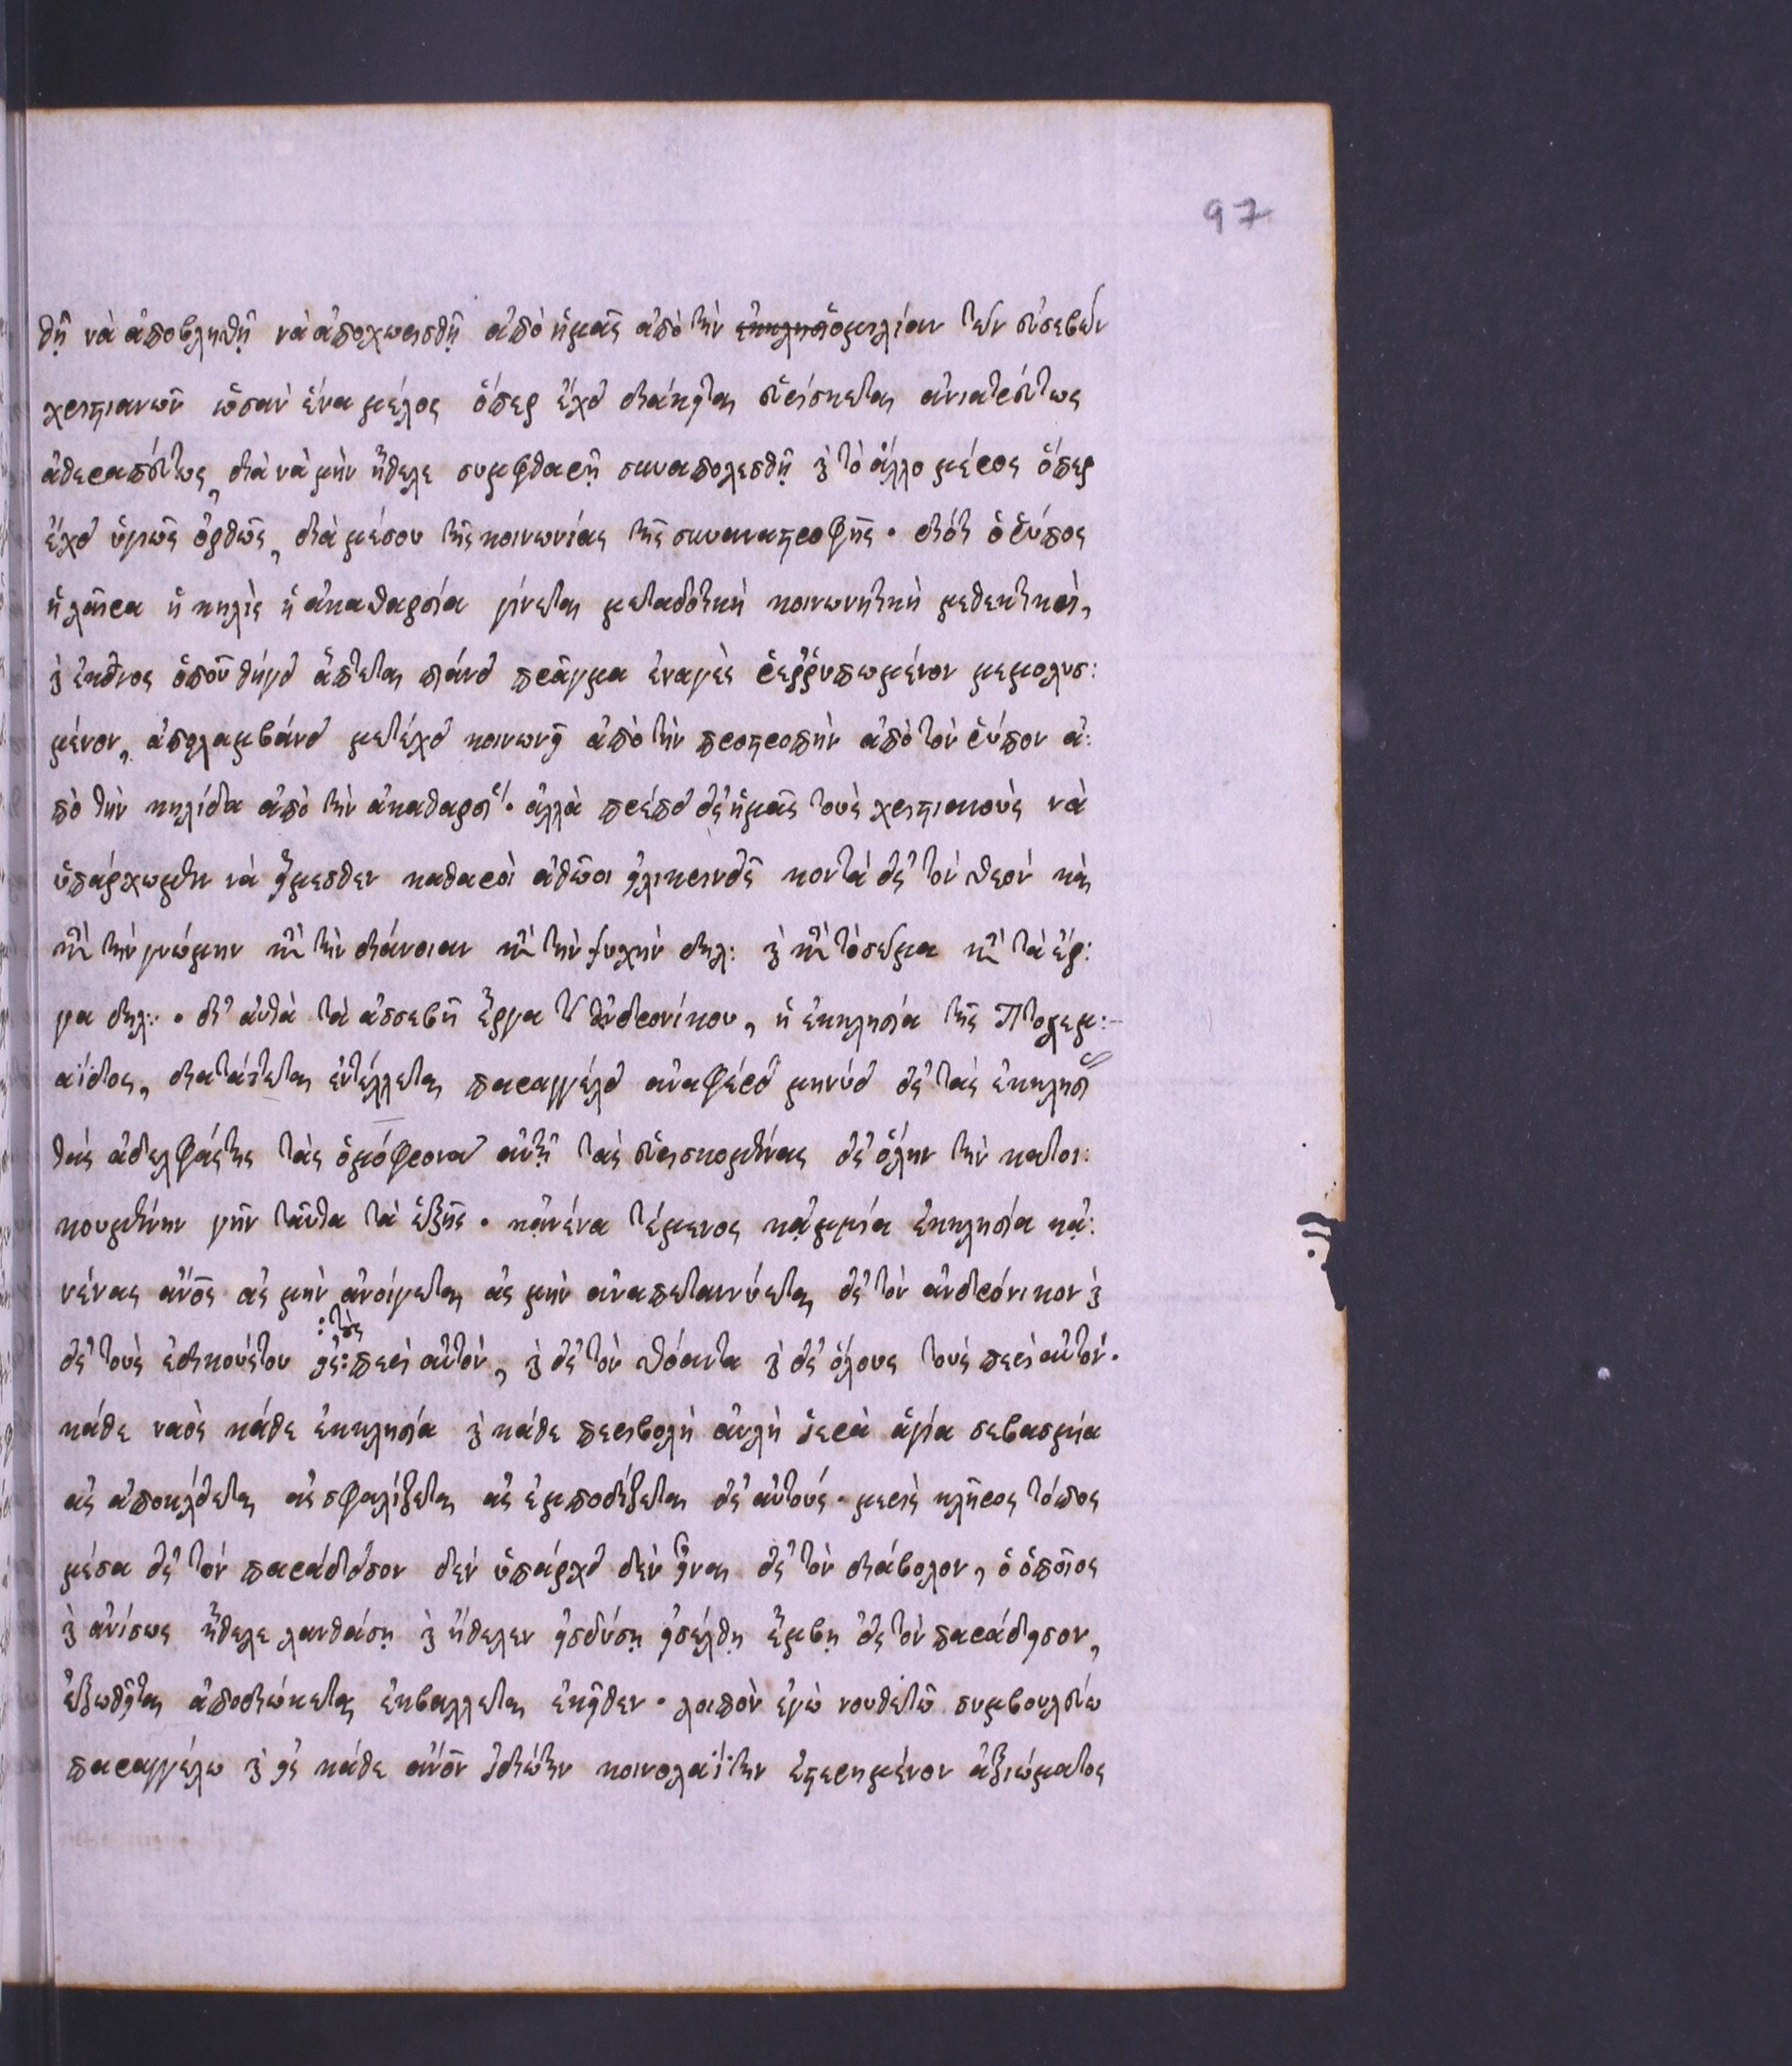 97
θῇ νὰ ἀποβληθῇ νὰ ἀποχωρισθῇ ἀπὸ ἡμᾶς ἀπὸ τὴν ὁμιλίαν τῶν εὐσεβῶν
χριστιανῶν ὡσὰν ἕνα μέλος ὅπερ ἔχει διάκειται εὑρίσκεται ἀνιατρεύτως
ἀθεραπεύτως, διὰ νὰ μὴν ἤθελε συμφθαρῇ συναπολεσθῇ ϗ τὸ ἄλλο μέρος ὅπερ
ἔχει ὑγιῶς ὀρθῶς, διὰ μέσου τῆς κοινωνίας τῆς συναναστροφῆς· διότι ὁ ῥύπος
ἡ λαῖρα ἡ κηλὶς ἡ ἀκαθαρσία γίνεται μεταδοτικὴ κοινωνητικὴ μεθεκτική,
ϗ ἐκεῖνος ὁποῦ θίγει ἅπτεται πιάνει πρᾶγμα ἐναγὲς ῥερῥυπωμένον μεμολυσ:
μένον, ἀπολαμβάνει μετέχει κοινωνεῖ ἀπὸ τὴν προστροπὴν ἀπὸ τὸν ῥύπον ἀ:
πὸ τὴν κηλίδα ἀπὸ τὴν ἀκαθαρσί· ἀλλὰ πρέπει εἰς ἡμᾶς τοὺς χριστιανοὺς νὰ
ὑπάρχωμεν νὰ εἴμεσθεν καθαροὶ ἀθῶοι εἰλικρινεῖς κοντὰ εἰς τὸν θεὸν καὶ
κατὰ τὴν γνώμην κατὰ τὴν διάνοιαν κατὰ τὴν ψυχὴν δηλ: ϗ κατὰ τὸ σῶμα κατὰ τὰ ἔρ:
γα δηλ: · δι' αὐτὰ τὰ ἀσσεβῆ ἔργα τοῦ ἀνδρονίκου, ἡ ἐκκλησία τῆς Πτολεμ:
αΐδος, διατάττεται ἐντέλλεται παραγγέλει ἀναφέρει μηνύει εἰς τὰς ἐκκλησί
τὰς ἀδελφάς της τὰς ὁμόφρονας αὐτῇ τὰς εὑρισκομένας εἰς ὅλην τὴν κατοι:
κουμένην γῆν ταῦτα τὰ ἑξῆς· κᾀνένα τέμενος κᾀμμία ἐκκλησία κᾀ:
νένας ἄνος ἂς μὴν ἀνοίγεται ἂς μὴν ἀναπεταννύεται εἰς τὸν ἀνδρόνικον ϗ
εἰς τοὺς ἐδικούς του εἰς: τοὺς περὶ αὐτόν, ϗ εἰς τὸν θόαντα ϗ εἰς ὅλους τοὺς περὶ αὐτόν·
κάθε ναὸς κάθε ἐκκλησία ϗ κάθε περιβολὴ αὐλὴ ἱερὰ ἁγία σεβασμία
ἂς ἀποκλείεται ἂς σφαλίζεται ἂς ἐμποδίζεται εἰς αὐτούς· μερὶς κλῆρος τόπος
μέσα εἰς τὸν παράδεισον δὲν ὑπάρχει δὲν εἶναι εἰς τὸν διάβολον, ὁ ὁποῖος
ϗ ἀνίσως ἤθελε λανθάσῃ ϗ ἤθελεν εἰσδύσῃ εἰσέλθῃ ἔμβῃ εἰς τὸν παράδεισον,
ἐξωθεῖται ἀποδιώκεται ἐκβάλλεται ἐκεῖθεν· λοιπὸν ἐγὼ νουθετῶ συμβουλεύω
παραγγέλω ϗ εἰς κάθε ἄνον ἰδιώτην κοινολαΐτην ἐστερημένον ἀξιώματος